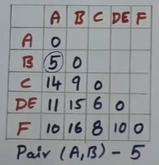 A B C DE F
A 0
B 5 0
C 14 9 0
DE 11 15 6 0
F 10 16 8 10 0
Pair (A,B) - 5